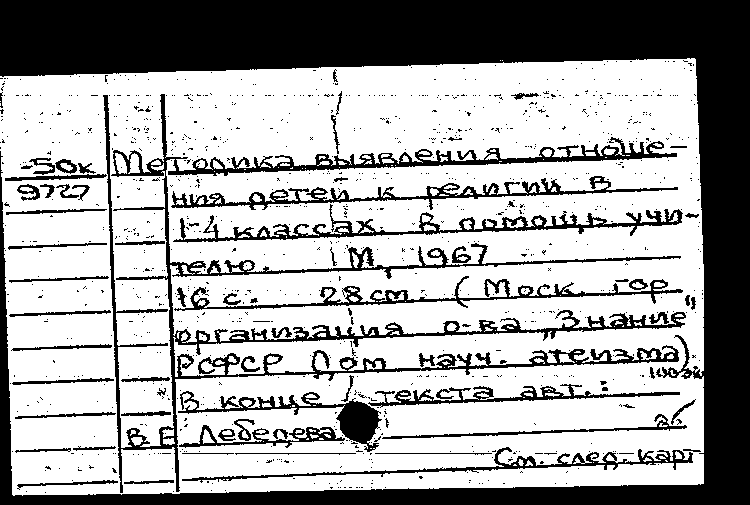 -50к Методика выявления отноше-
9727 ния детей к религии в
1-4 классах. В помощь учи-
телю. М., 1967
16 с. 28 см. (Моск. гор.
организация о-ва „Знание"
РСФСР. Дом науч. атеизма)
100 экз
В конце текста авт.:
В. Е. Лебедева
См. след. карт